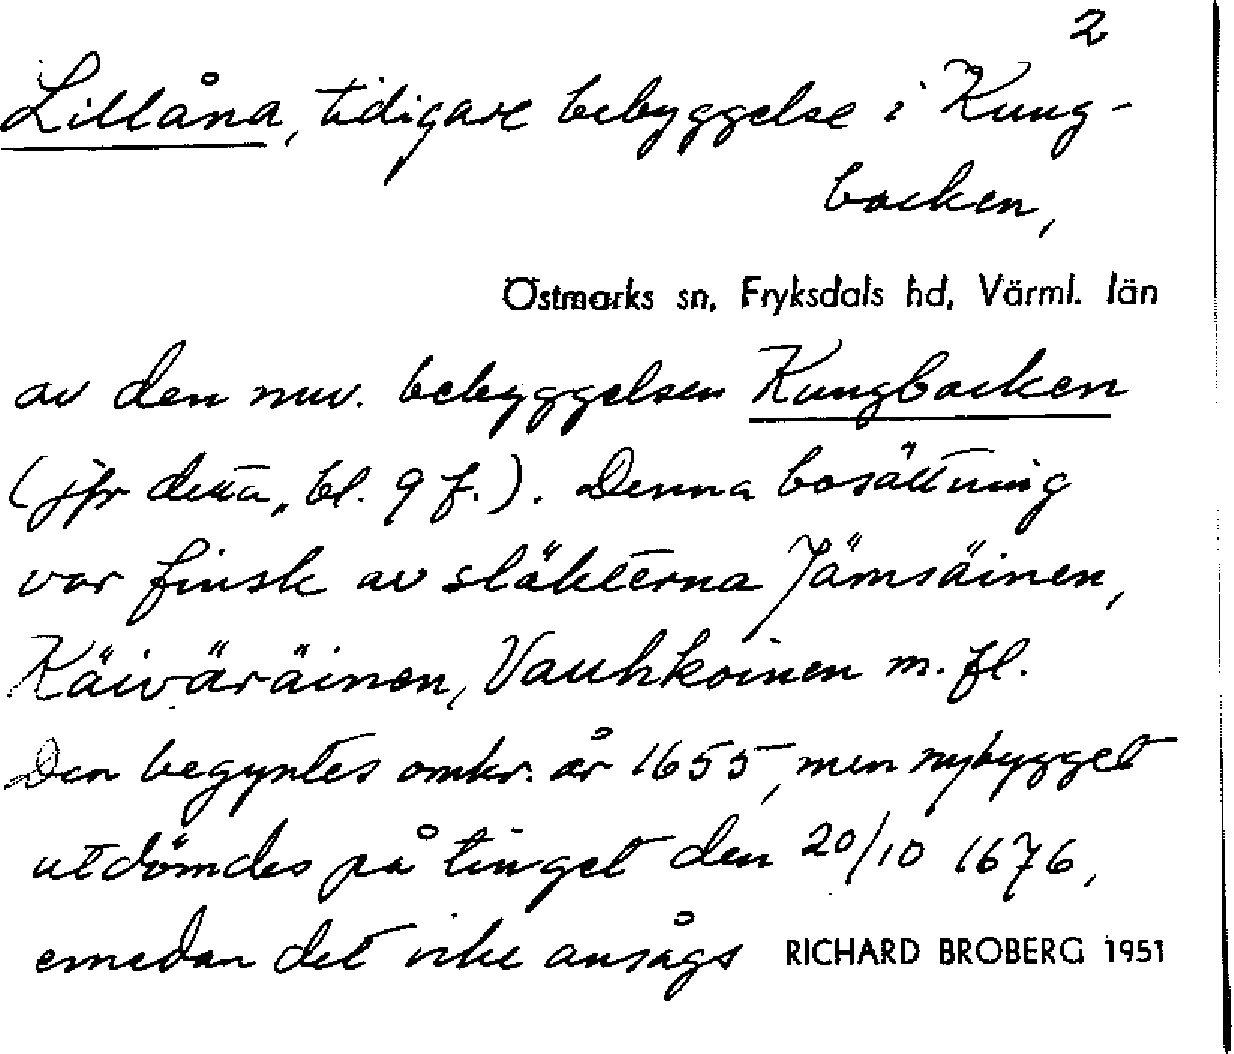 2
Lillåna, tidigare bebyggelse i Kung-
backen,
Östmarks sn, Fryksdals hd, Värml. län
av den nuv. bebyggelsen Kungbacken
(jfr detta, bl. 9 f.). Denna bosättning
var finsk av släkterna Jämsäinen,
Käiväräinen, Vauhkoinen m. fl.
Den begyntes omkr. år 1655, men nybygget
utdömdes på tinget den 20/10 1676,
emedan det icke ansågs RICHARD BROBERG 1951